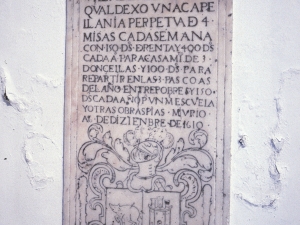 QVAL DEXO VNA CAPE
LLANIA PERPETVA D 4
MISAS CADA SEMANA
CON 150 DS D RENTA Y 400 DS
CADA A PARA CASAMI DE 3
DONCELLAS Y 100 DS PARA
REPARTIR EN LAS 3 PASCOAS
DEL AÑO ENTRE POBRES Y 150
DS CADA AÑO P VN MESCVELA
Y OTRAS OBRAS PIAS MVRIO
A DE DIZIENBRE DE 1610